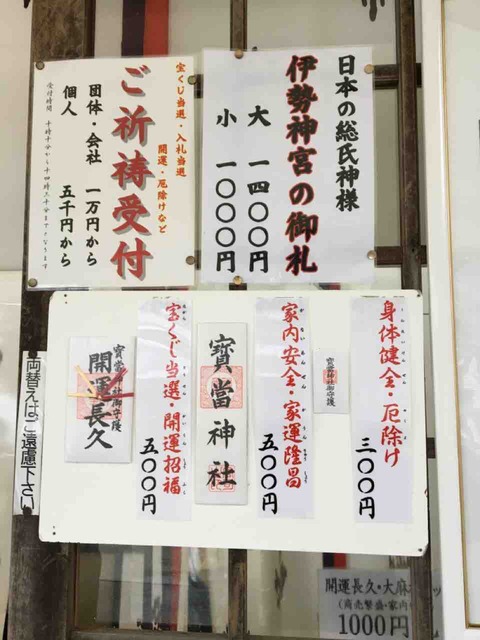 日本の総氏神様
伊勢神宮の御札
大 一四〇〇〇円
小 一〇〇〇〇円
宝くじ当選・入札当選
開運・厄除けなど
ご祈祷受付
団体・会社 一万円から
個人 五千円から
受付時間 十時十分から十四時三十分までとなります
身体健全・厄除け
三〇〇円
寳當神社御守護
家内安全・家運隆昌
五〇〇円
寳當神社
宝くじ当選・開運招福
五〇〇円
寳當神社御守護
開運長久
両替えはご遠慮下さい
開運長久・大麻
(商売繁盛・家内
1000円